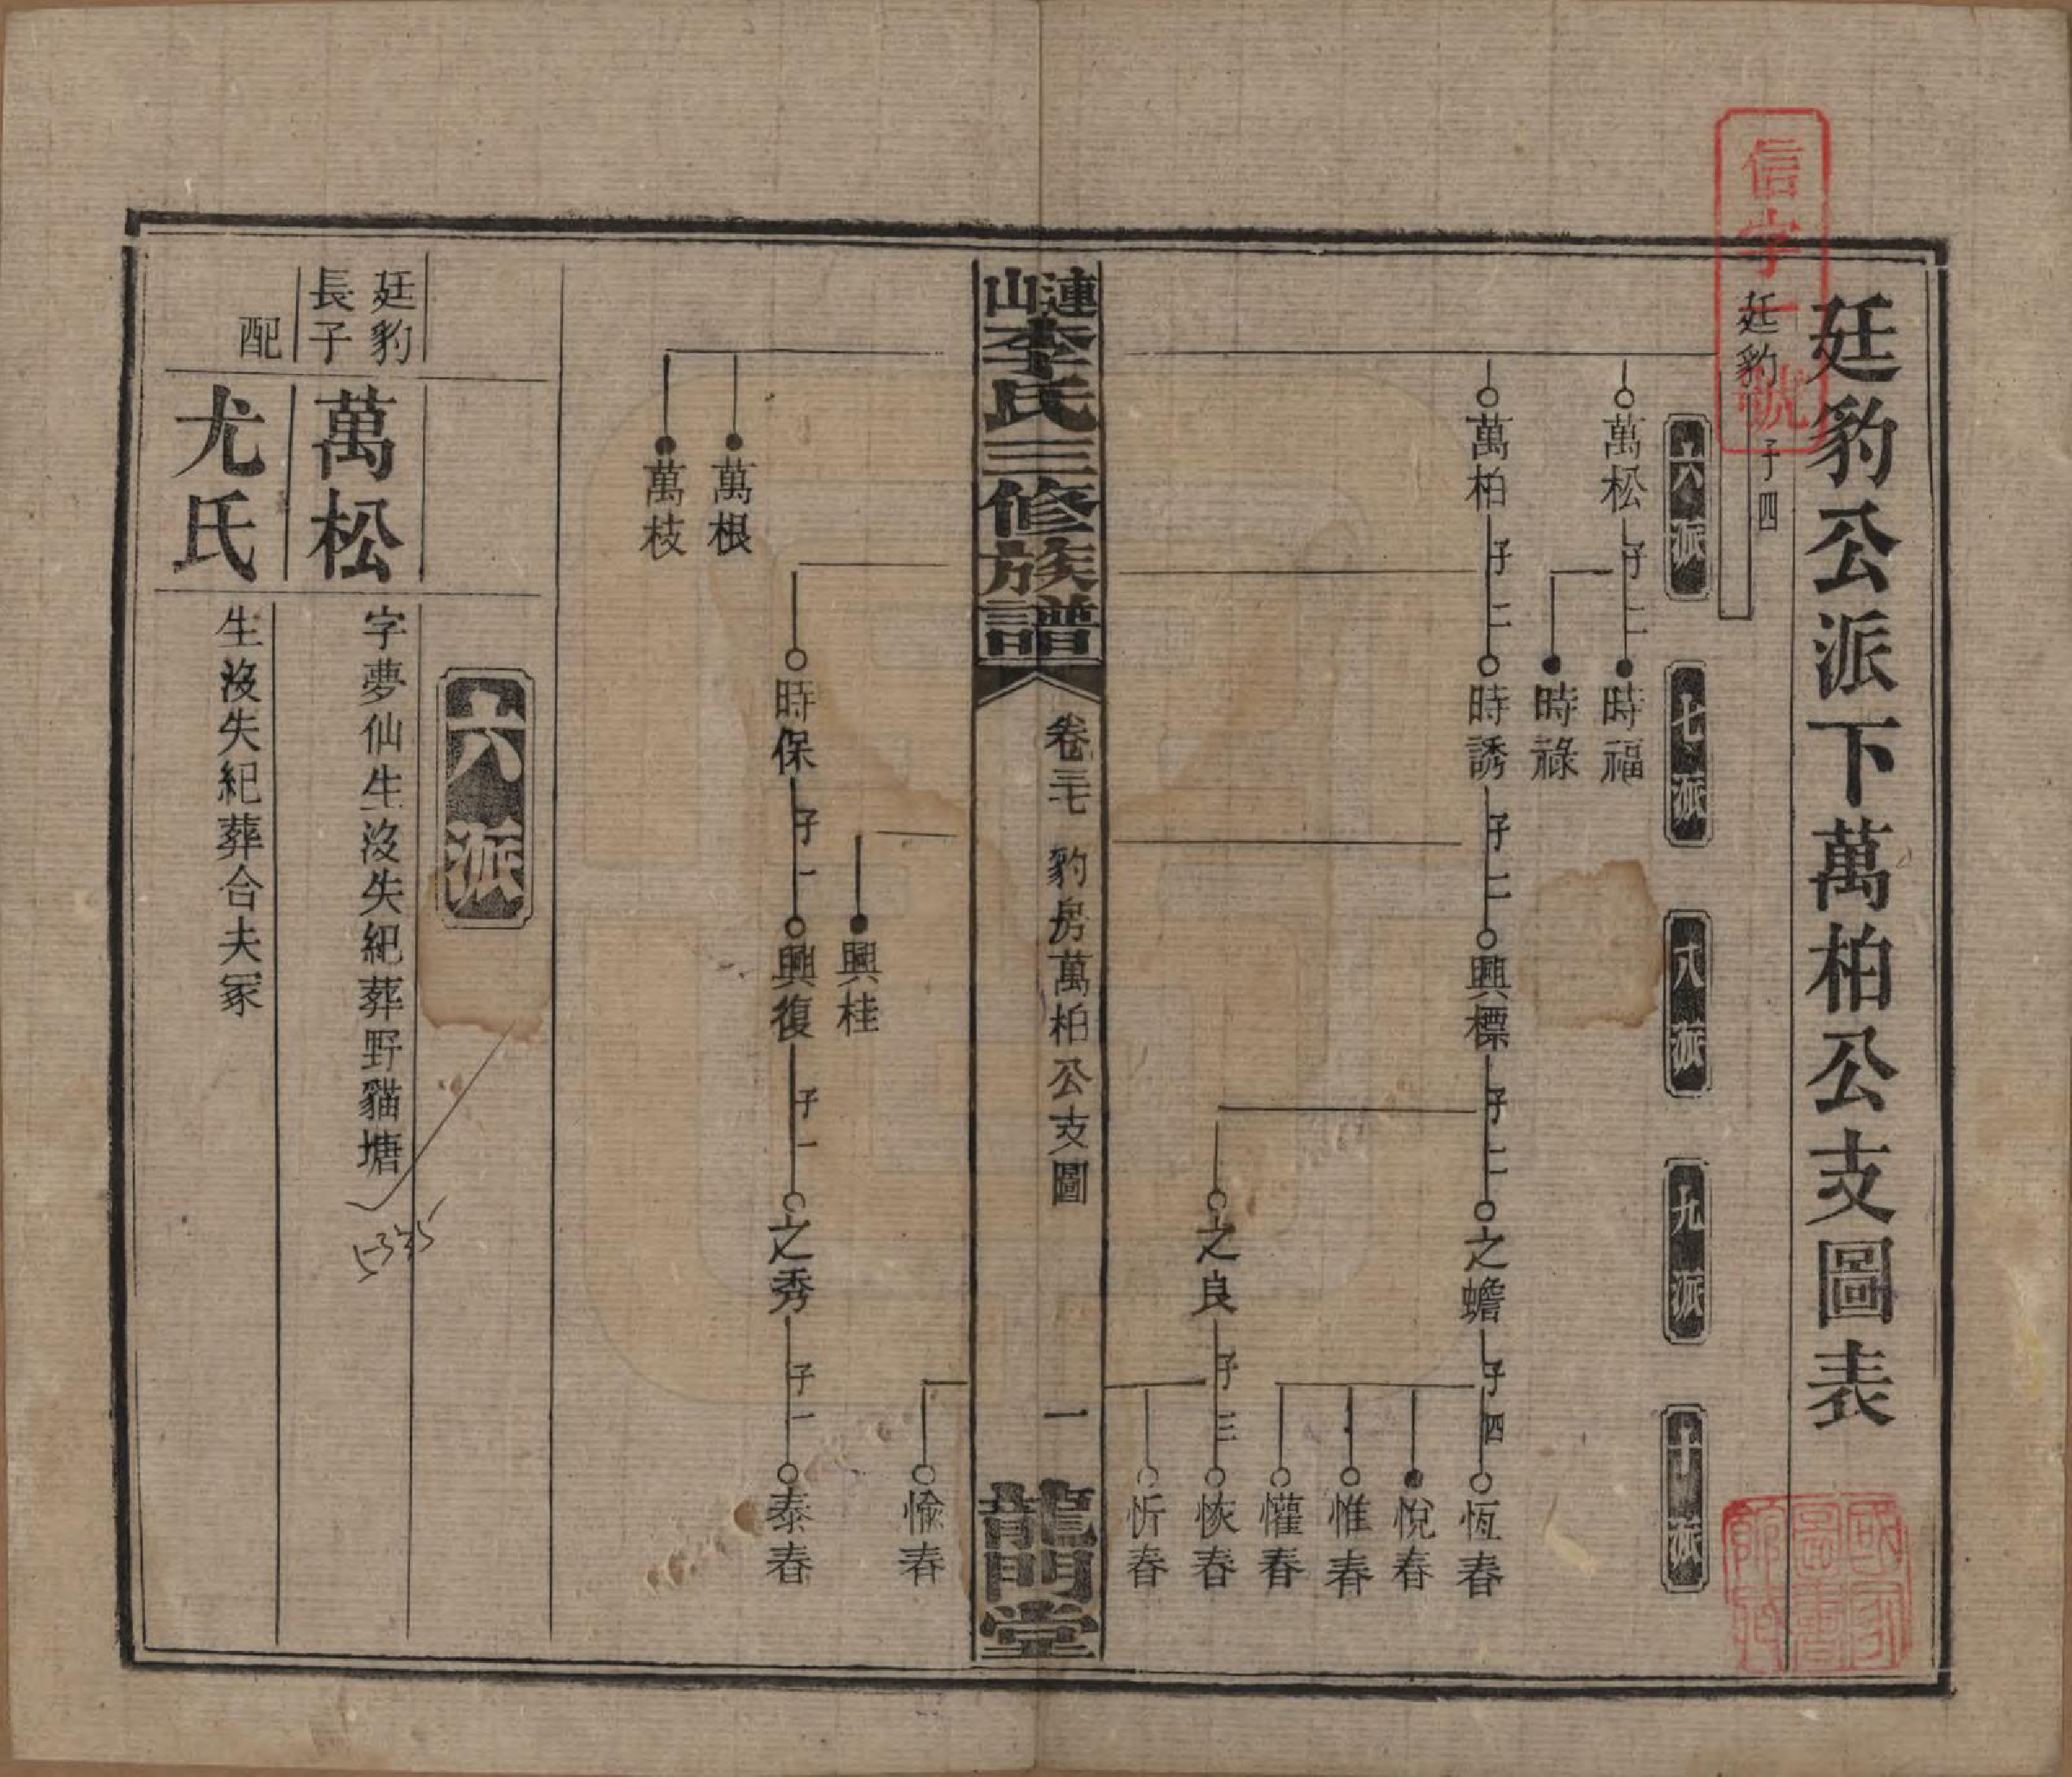 信字一號
廷豹公派下萬柏公支圖表
國家圖書館藏
廷豹 子四
六派
七派
八派
九派
十派
萬松 子二
時福
時祿
萬柏 子二
時誘 子二
興標 子二
之蟾 子四
恆春
悅春
惟春
懽春
之良 子三
恢春
忻春
漣山李氏三修族譜
卷三七 豹房萬柏公支圖
一
龍門堂
愉春
興桂
時保 子一
興復 子一
之秀 子一
泰春
萬根
萬枝
六派
廷豹長子
萬松
字夢仙生沒失紀葬野貓塘
配
尤氏
生沒失紀葬合夫冢